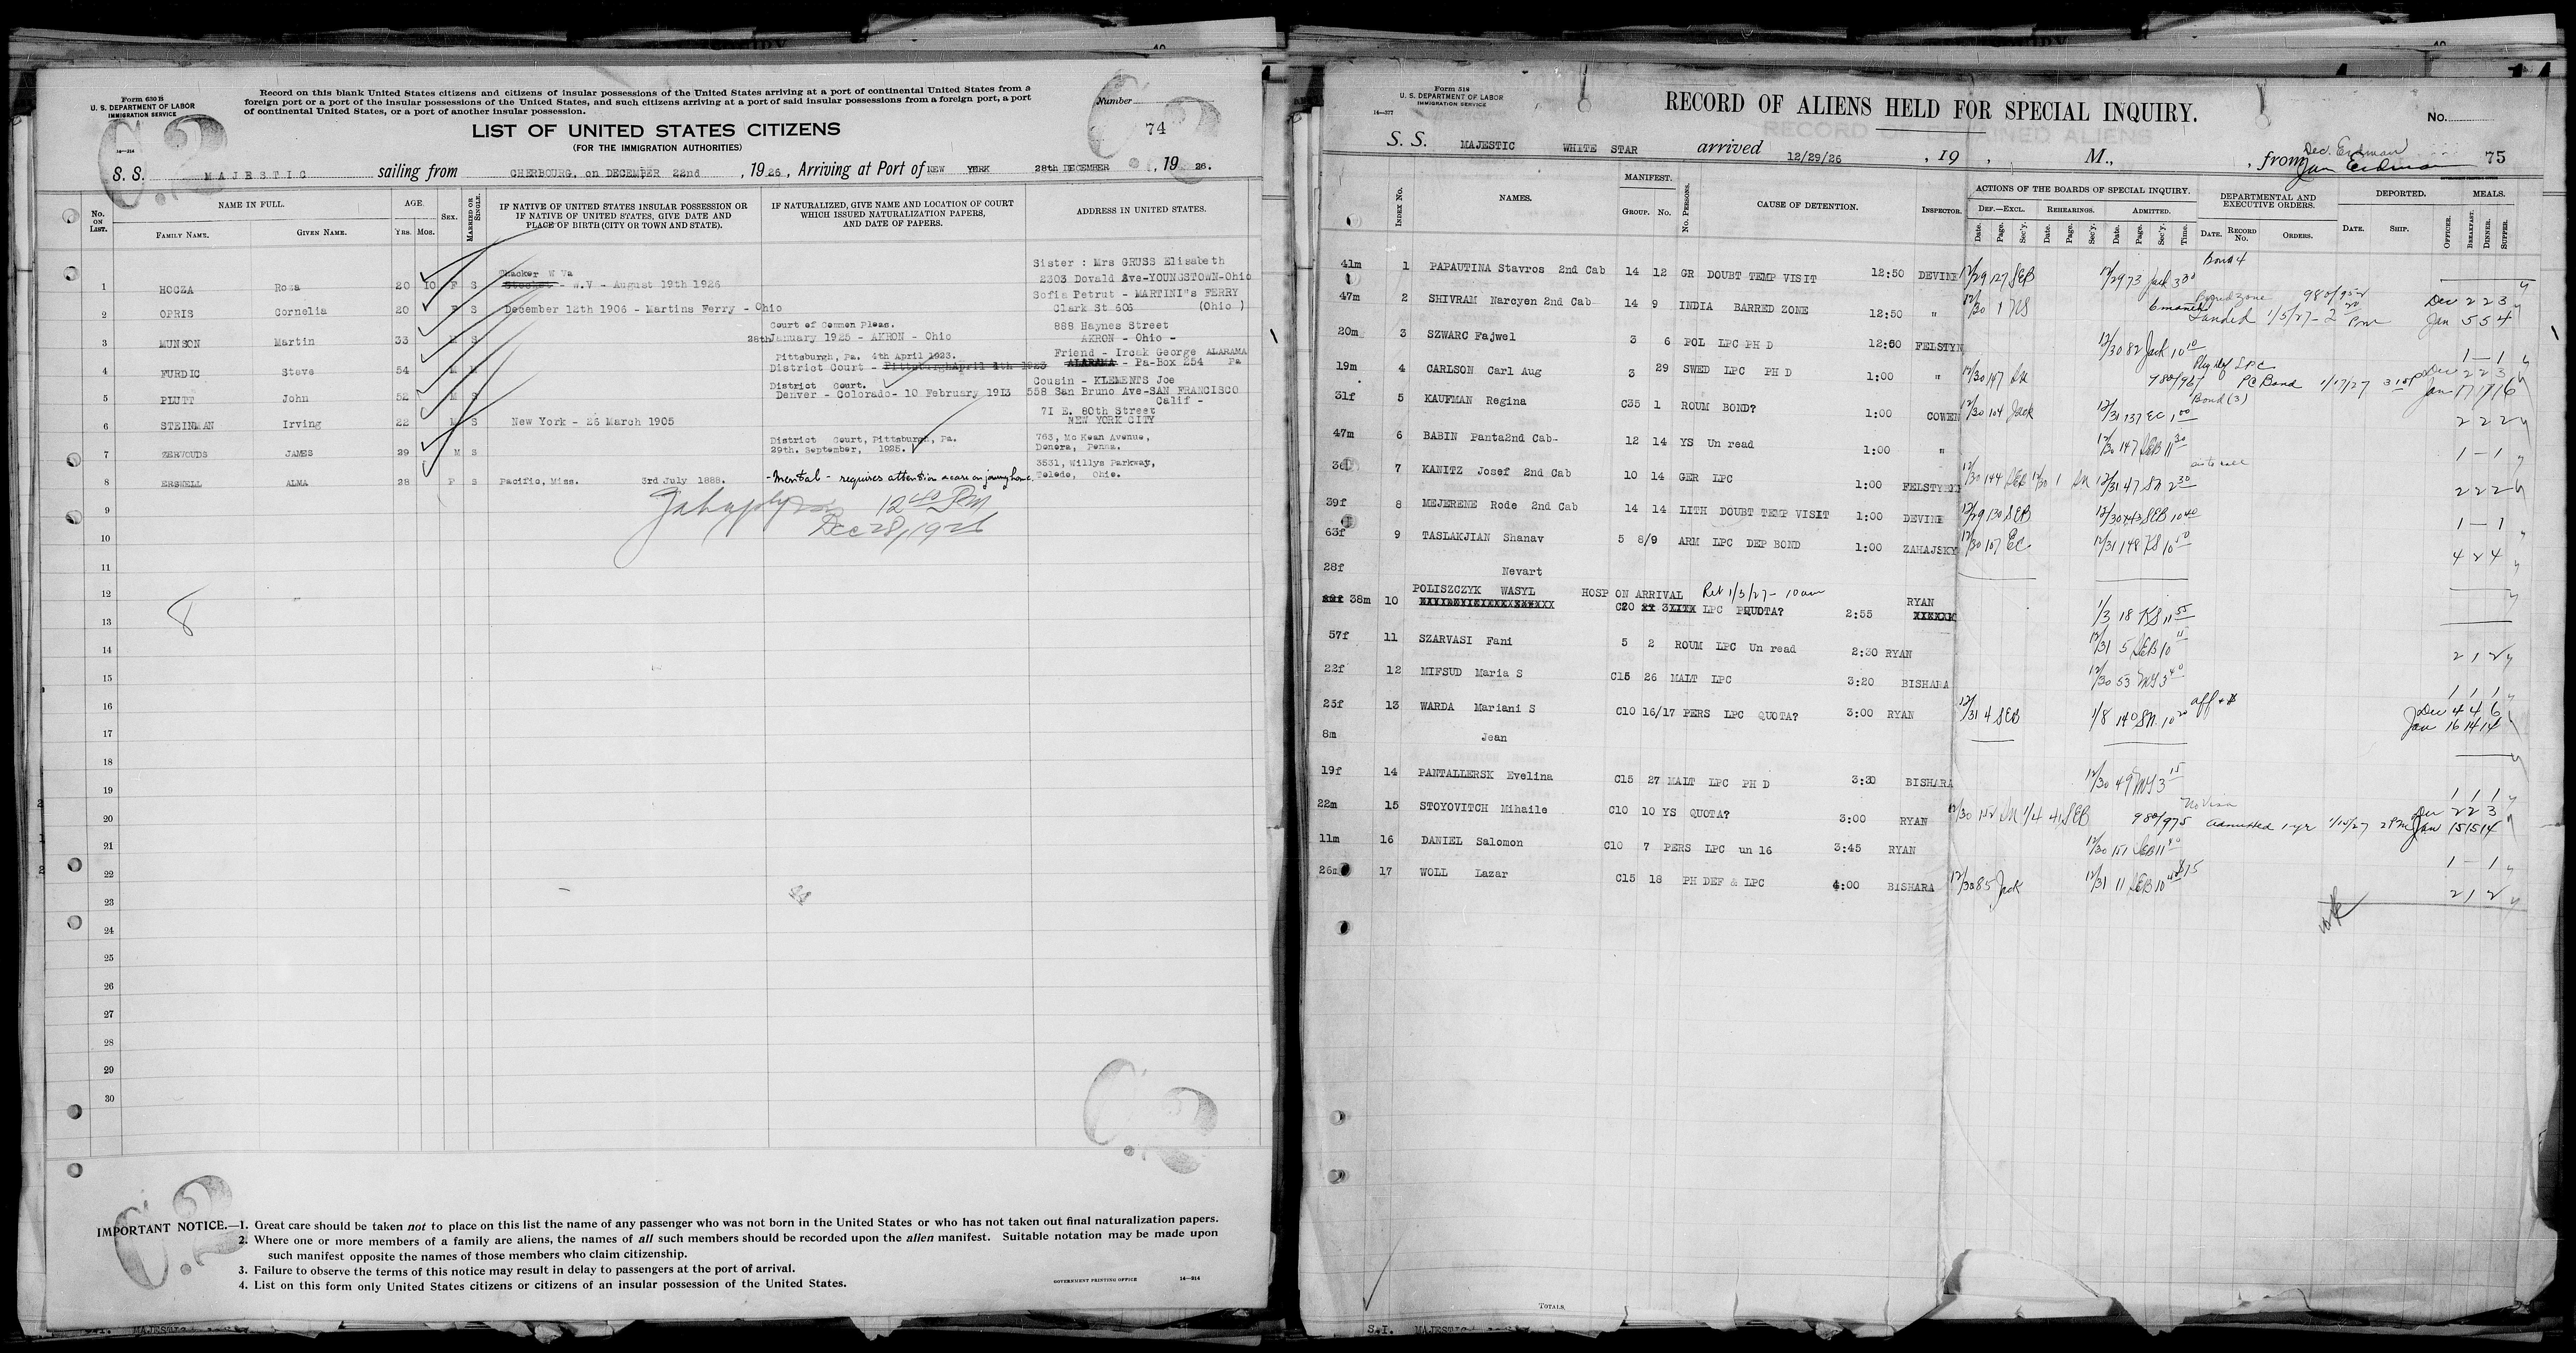 Form 630 B
U. S. DEPARTMENT OF LABOR
IMMIGRATION SERVICE
Record on this blank United States citizens and citizens of insular possessions of the United States arriving at a port of continental United States from a
foreign port or a port of the insular possessions of the United States, and such citizens arriving at a port of said insular possessions from a foreign port, a port
of continental United States, or a port of another insular possession.
Number
74
LIST OF UNITED STATES CITIZENS
(FOR THE IMMIGRATION AUTHORITIES)
S. S. MAJESTIC sailing from CHERBOURG, on DECEMBER 22nd, 1926, Arriving at Port of NEW YORK 28th DECEMBER, 1926.
No. ON LIST. NAME IN FULL. AGE. SEX. MARRIED OR SINGLE. IF NATIVE OF UNITED STATES INSULAR POSSESSION OR IF NATIVE OF UNITED STATES, GIVE DATE AND PLACE OF BIRTH (CITY OR TOWN AND STATE). IF NATURALIZED, GIVE NAME AND LOCATION OF COURT WHICH ISSUED NATURALIZATION PAPERS, AND DATE OF PAPERS. ADDRESS IN UNITED STATES.
FAMILY NAME. GIVEN NAME. YRS. MOS.
Sister : Mrs GRUSS Elisabeth
Thacker W Va 2303 Dovald Ave-YOUNGSTOWN-Ohio
1 HOCZA Rosa 20 10 F S - W.V - August 19th 1926
Sofia Petrut - MARTINI"s FERRY
2 OPRIS Cornelia 20 F S December 12th 1906 - Martins Ferry - Ohio Clark St 606 (Ohio )
Court of Common Pleas. 888 Haynes Street
3 MUNSON Martin 33 M S 28th January 1925 - AKRON - Ohio AKRON - Ohio -
Pittsburgh, Pa. 4th April 1923. Friend - Ircak George ALARAMA
4 FURDIC Steve 54 M M District Court - Pittsburgh April 4th 1923 ALARAMA - Pa-Box 254 Pa
District Court. Cousin - KLEMENTS Joe
5 PLUTT John 52 M S Denver - Colorado- 10 February 1913 558 San Bruno Ave-SAN FRANCISCO
Calif -
71 E. 80th Street
6 STEINMAN Irving 22 M S New York - 26 March 1905 NEW YORK CITY
District Court, Pittsburgh, Pa. 763, Mc Kean Avenue,
7 ZERVOUDS JAMES 29 M S 29th. September, 1925. Donora, Penna.
3531, Willys Parkway,
8 ERSWELL ALMA 28 F S Pacific, Miss. 3rd July 1888. -Mental - requires attention & care on joining home. Toledo, Ohio.
12 40 PM
Dec 28, 1926
9
10
11
12
13
14
15
16
17
18
19
20
21
22
23
24
25
26
27
28
29
30
8
IMPORTANT NOTICE.—1. Great care should be taken not to place on this list the name of any passenger who was not born in the United States or who has not taken out final naturalization papers.
2. Where one or more members of a family are aliens, the names of all such members should be recorded upon the alien manifest. Suitable notation may be made upon
such manifest opposite the names of those members who claim citizenship.
3. Failure to observe the terms of this notice may result in delay to passengers at the port of arrival.
4. List on this form only United States citizens or citizens of an insular possession of the United States.
GOVERNMENT PRINTING OFFICE 14—214
14—377
Form 518
U. S. DEPARTMENT OF LABOR
IMMIGRATION SERVICE
RECORD OF ALIENS HELD FOR SPECIAL INQUIRY.
No.
75
S. S. MAJESTIC WHITE STAR arrived 12/29/26, 19 , M., , from Dec. Erdman
Jan Erdman
INDEX NO. NAMES. MANIFEST. GROUP. NO. NO. PERSONS. CAUSE OF DETENTION. INSPECTOR. ACTIONS OF THE BOARDS OF SPECIAL INQUIRY. DEPARTMENTAL AND EXECUTIVE ORDERS. DEPORTED. MEALS.
DEF.—EXCL. REHEARINGS. ADMITTED.
Date. Page. Sec'y. Date. Page. Sec'y. Date. Page. Sec'y. Time. DATE. RECORD NO. ORDERS. DATE. SHIP. OFFICER. BREAKFAST. DINNER. SUPPER.
41m 1 PAPAUTINA Stavros 2nd Cab 14 12 GR DOUBT TEMP VISIT 12:50 DEVINE 12/29 127 SEB 12/29 73 Jack 3 30 Bond 4
47m 2 SHIVRAM Naroyen 2nd Cab 14 9 INDIA BARRED ZONE 12:50 " 12/30 1 KS 6 months Barred zone Landed 1/5/27 - 2 Dec 2 2 3 Jan 5 5 4
20m 3 SZWARC Fajwel 3 6 POL LPC PH D 12:50 FELSTYN 12/30 82 Jack 10 10 1 — 1
19m 4 CARLSON Carl Aug 3 29 SWED LPC PH D 1:00 " 12/30 147 SN 980/967 PC Bond 1/17/27 Dec 2 2 3 Jan 17 17 16
31f 5 KAUFMAN Regina C35 1 ROUM BOND? 1:00 COWEN 12/30 104 Jack 12/31 137 EC 1 00 Bond (3) 2 2 2
47m 6 BABIN Panta 2nd Cab- 12 14 YS Un read 1:00 " 12/30 147 SEB 11 30 1 — 1
7 KANITZ Josef 2nd Cab 10 14 GER LPC 1:00 FELSTYN 12/30 144 SEB 12/30 1 SN 12/31 47 SN 2 30 2 2 2
39f 8 MEJERENE Rode 2nd Cab 14 14 LITH DOUBT TEMP VISIT 1:00 DEVINE 12/29 130 SEB 12/30 143 SEB 10 40 1 — 1
63f 9 TASLAKJIAN Shanav 5 8/9 ARM LPC DEP BOND 1:00 ZAHAJSKY 12/30 107 EC 12/31 148 KS 10 50 4 2 4
28f Nevart
38m 10 POLISZCZYK WASYL HOSP ON ARRIVAL Rel 1/3/27 - 10 am C20 3 LPC QUOTA? 2:55 RYAN 1/3 18 KS 11 55
57f 11 SZARVASI Fani 5 2 ROUM LPC Un read 2:30 RYAN 12/31 5 SEB 10 15 2 1 2
22f 12 MIFSUD Maria S C15 26 MALT LPC 3:20 BISHARA 12/30 53 MG 3 40 1 1 1
25f 13 WARDA Mariani S C10 16/17 PERS LPC QUOTA? 3:00 RYAN 12/31 4 SEB 1/8 140 SN 10 20 Dec 4 4 6 Jan 16 14 14
8m Jean
19f 14 PANTALLERSK Evelina C15 27 MALT LPC PH D 3:30 BISHARA 12/30 49 MG 3 15 1 1 1
22m 15 STOYOVITCH Mihaile C10 10 YS QUOTA? 3:00 RYAN 12/30 152 SN 1/4 41 SEB 980/975 No Visa Admitted 1 yr 1/15/27 2 PM Dec 2 2 3 Jan 15 15 14
11m 16 DANIEL Salomon C10 7 PERS LPC un 16 3:45 RYAN 12/30 151 SEB 11 40 1 — 1
17 WOLL Lazar C15 18 PH DEF & LPC 4:00 BISHARA 12/30 85 Jack 12/31 11 SEB 10 2 1 2
TOTALS.
S.I. MAJESTIC